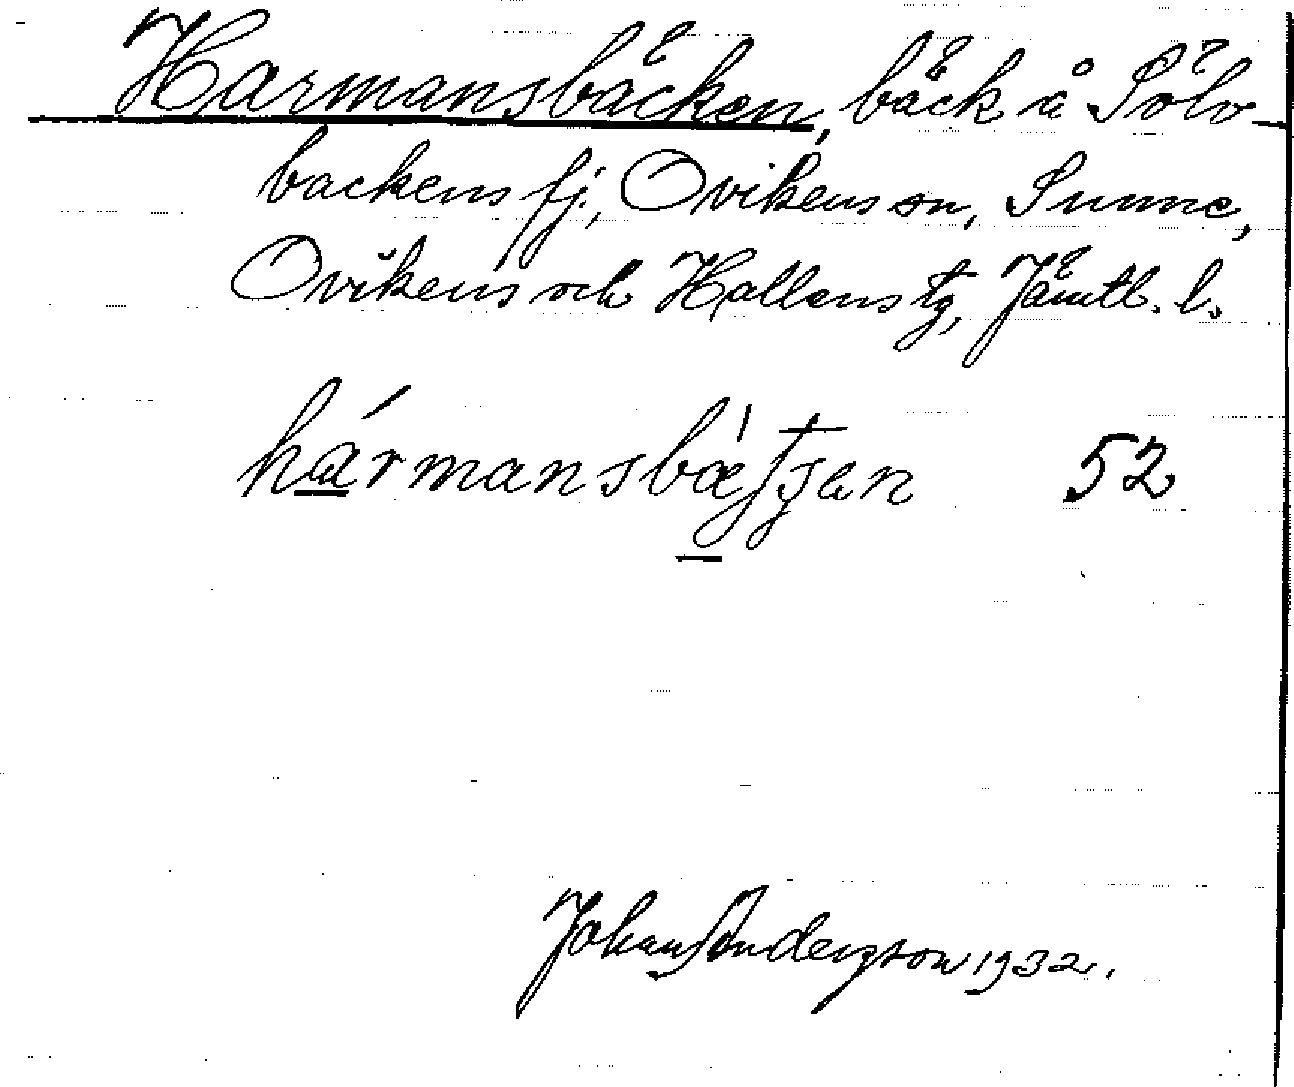 Harmansbäcken, bäck å Sölv-
backens fj., Ovikens sn, Sunne,
Ovikens och Hallens tg, Jämtl. l.
hármansbætjan 52
Johan Anderzson 1932.